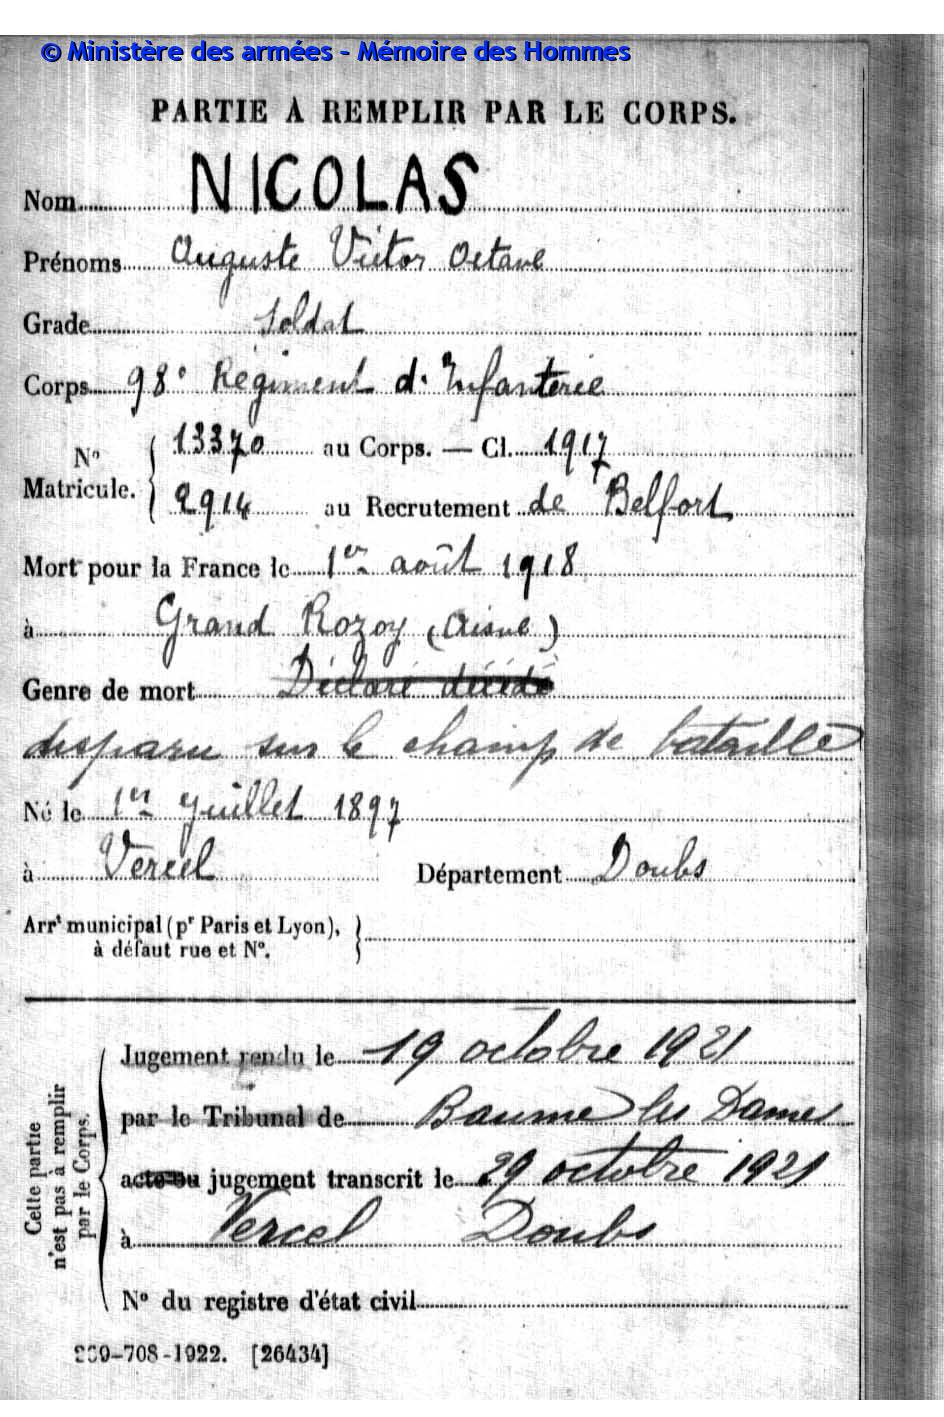 © Ministère des armées - Mémoire des Hommes
PARTIE À REMPLIR PAR LE CORPS.
Nom NICOLAS
Prénoms Auguste Victor Octave
Grade Soldat
Corps 98e Régiment d'Infanterie
N° Matricule. 13370 au Corps. — Cl. 1917
2914 au Recrutement de Belfort
Mort pour la France le 1er août 1918
à Grand Rozoy (Aisne)
Genre de mort Déclaré décédé
disparu sur le champ de bataille
Né le 1er Juillet 1897
à Vercel Département Doubs
Arrt municipal (pr Paris et Lyon),
à défaut rue et N°.
Cette partie
n'est pas à remplir
par le Corps.
Jugement rendu le 19 octobre 1921
par le Tribunal de Baume les Dames
acte ou jugement transcrit le 29 octobre 1921
à Vercel Doubs
N° du registre d'état civil
-708-1922. [26434]